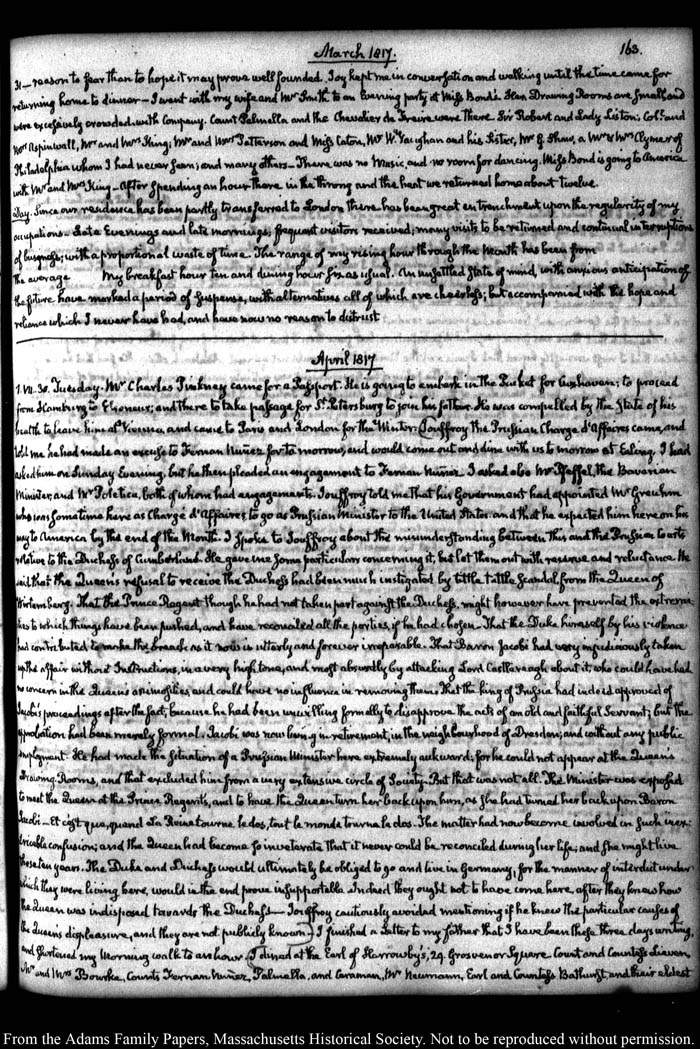 March 1817.
163.
31— reason to fear than to hope it may prove well founded. Joy kept me in conversation and walking until the time came for
returning home to dinner— I went with my wife and Mr Smith to an Evening party at Miss Bond's. Her Drawing Rooms are small and
were excessively crowded with Company. Count Palmella and the Chevalier de Freire were there. Sir Robert and Lady Liston; Coll. and
Mrs Aspinwall, Mr and Mrs King; Mr and Mrs Patterson and Miss Caton, Mr Wm Vaughan and his Sister, Mr G. Shaw, a Mr & Mrs Clymer of
Philadelphia whom I had never seen; and many others— There was no Music, and no room for dancing. Miss Bond is going to America
with Mr and Mrs King— After spending an hour there in the throng and the heat we returned home about twelve.
Day. Since our residence has been partly transferred to London there has been great entrenchment upon the regularity of my
occupations. Late Evenings and late mornings; frequent visitors received; many visits to be returned and continual interruptions
of business; with a proportional waste of time. The range of my rising hour through the Month has been from
the average My breakfast hour ten and dining hour six as usual. An unsettled State of mind, with anxious anticipations of
the future have marked a period of suspense, with alternatives all of which are cheerless; but accompanied with the hope and
reliance which I never have had, and have now no reason to distrust
April 1817
1. VII. 30. Tuesday. Mr Charles Pinkney came for a Passport. He is going to embark in the Packet for Cuxhaven; to proceed
from Hamburg to Elsineur; and there to take passage for St. Petersburg to join his father. He was compelled by the State of his
health to leave him at Vienna and came to Paris and London for the Winter. Jouffroy the Prussian Chargé d'Affaires came, and
told me he had made an excuse to Fernan Nuñez for to morrow, and would come out and dine with us to morrow at Ealing. I had
asked him on Sunday Evening, but he then pleaded an engagement to Fernan Nuñez. I asked also Mr Pfeffel, the Bavarian
Minister, and Mr Poletica, both of whom had engagements. Jouffroy told me that his Government had appointed Mr Greuhm
who was sometime here as Chargé d'Affaires, to go as Prussian Minister to the United States and that he expected him here on his
way to America by the end of the Month. I spoke to Jouffroy about the misunderstanding between this and the Prussian Courts
relative to the Duchess of Cumberland. He gave me some particulars concerning it, but let them out with reserve and reluctance. He
said that the Queen's refusal to receive the Duchess had been much instigated by tittle tattle Scandal, from the Queen of
Wirtemberg. That the Prince Regent though he had not taken part against the Duchess, might however have prevented the extremi-
ties to which things have been pushed, and have reconciled all the parties, if he had chosen— That the Duke himself by his violence
had contributed to make the breach as it now is utterly and forever irreparable. That Baron Jacobi had very injudiciously taken
up the affair without Instructions, in a very high tone, and most absurdly by attacking Lord Castlereagh about it, who could have had
no concern in the Queen's animosities, and could have no influence in removing them. That the king of Prussia had indeed approved of
Jacobi's proceedings after the fact, because he had been unwilling formally to disapprove the acts of an old and faithful Servant; but the
approbation had been merely formal. Jacobi was now living in retirement, in the neighbourhood of Dresden; and without any public
employment. He had made the situation of a Prussian Minister here extremely aukward; for he could not appear at the Queen's
Drawing-Rooms, and that excluded him from a very extensive circle of Society. But that was not all. The Minister was exposed
to meet the Queen at the Prince Regent's, and to have the Queen turn her back upon him, as she had turned her back upon Baron
Jacobi— Et c'est que, quand La Reine tourne le dos, tout le monde tourne le dos. The matter had now become involved in such inex-
tricable confusion; and the Queen had become so inveterate that it never could be reconciled during her life; and she might live
these ten years. The Duke and Duchess would ultimately be obliged to go and live in Germany, for the manner of interdict under
which they were living here, would in the end prove insupportable. Indeed they ought not to have come here, after they knew how
the Queen was indisposed towards the Duchess— Jouffroy cautiously avoided mentioning if he knew the particular causes of
the Queen's displeasure, and they are not publicly known— I finished a Letter to my father that I have been these three days writing,
and shortened my Morning walk to an hour. I dined at the Earl of Harrowby's, 29. Grosvenor Square. Count and Countess Lieven
Mr and Mrs Bourke, Counts Fernan Nuñez, Palmella, and Caraman, Mr Neumann, Earl and Countess Bathurst, and their eldest
From the Adams Family Papers, Massachusetts Historical Society. Not to be reproduced without permission.